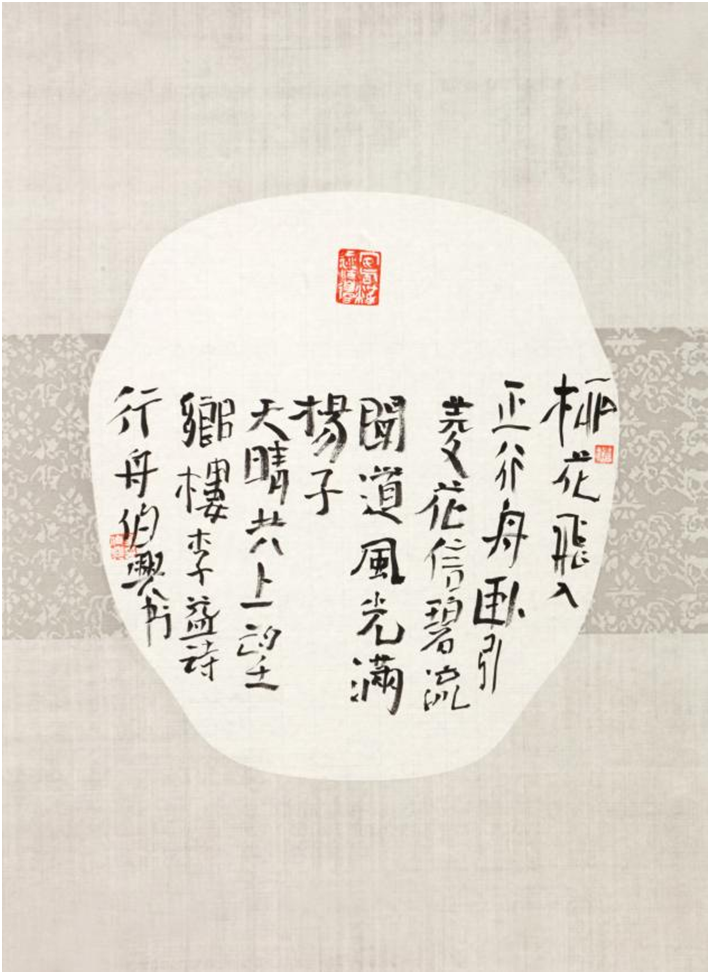 柳花飛入
正行舟卧引
菱花信碧流
聞道風光滿
楊子
天晴共上望
鄉樓李益詩
行舟伯興書